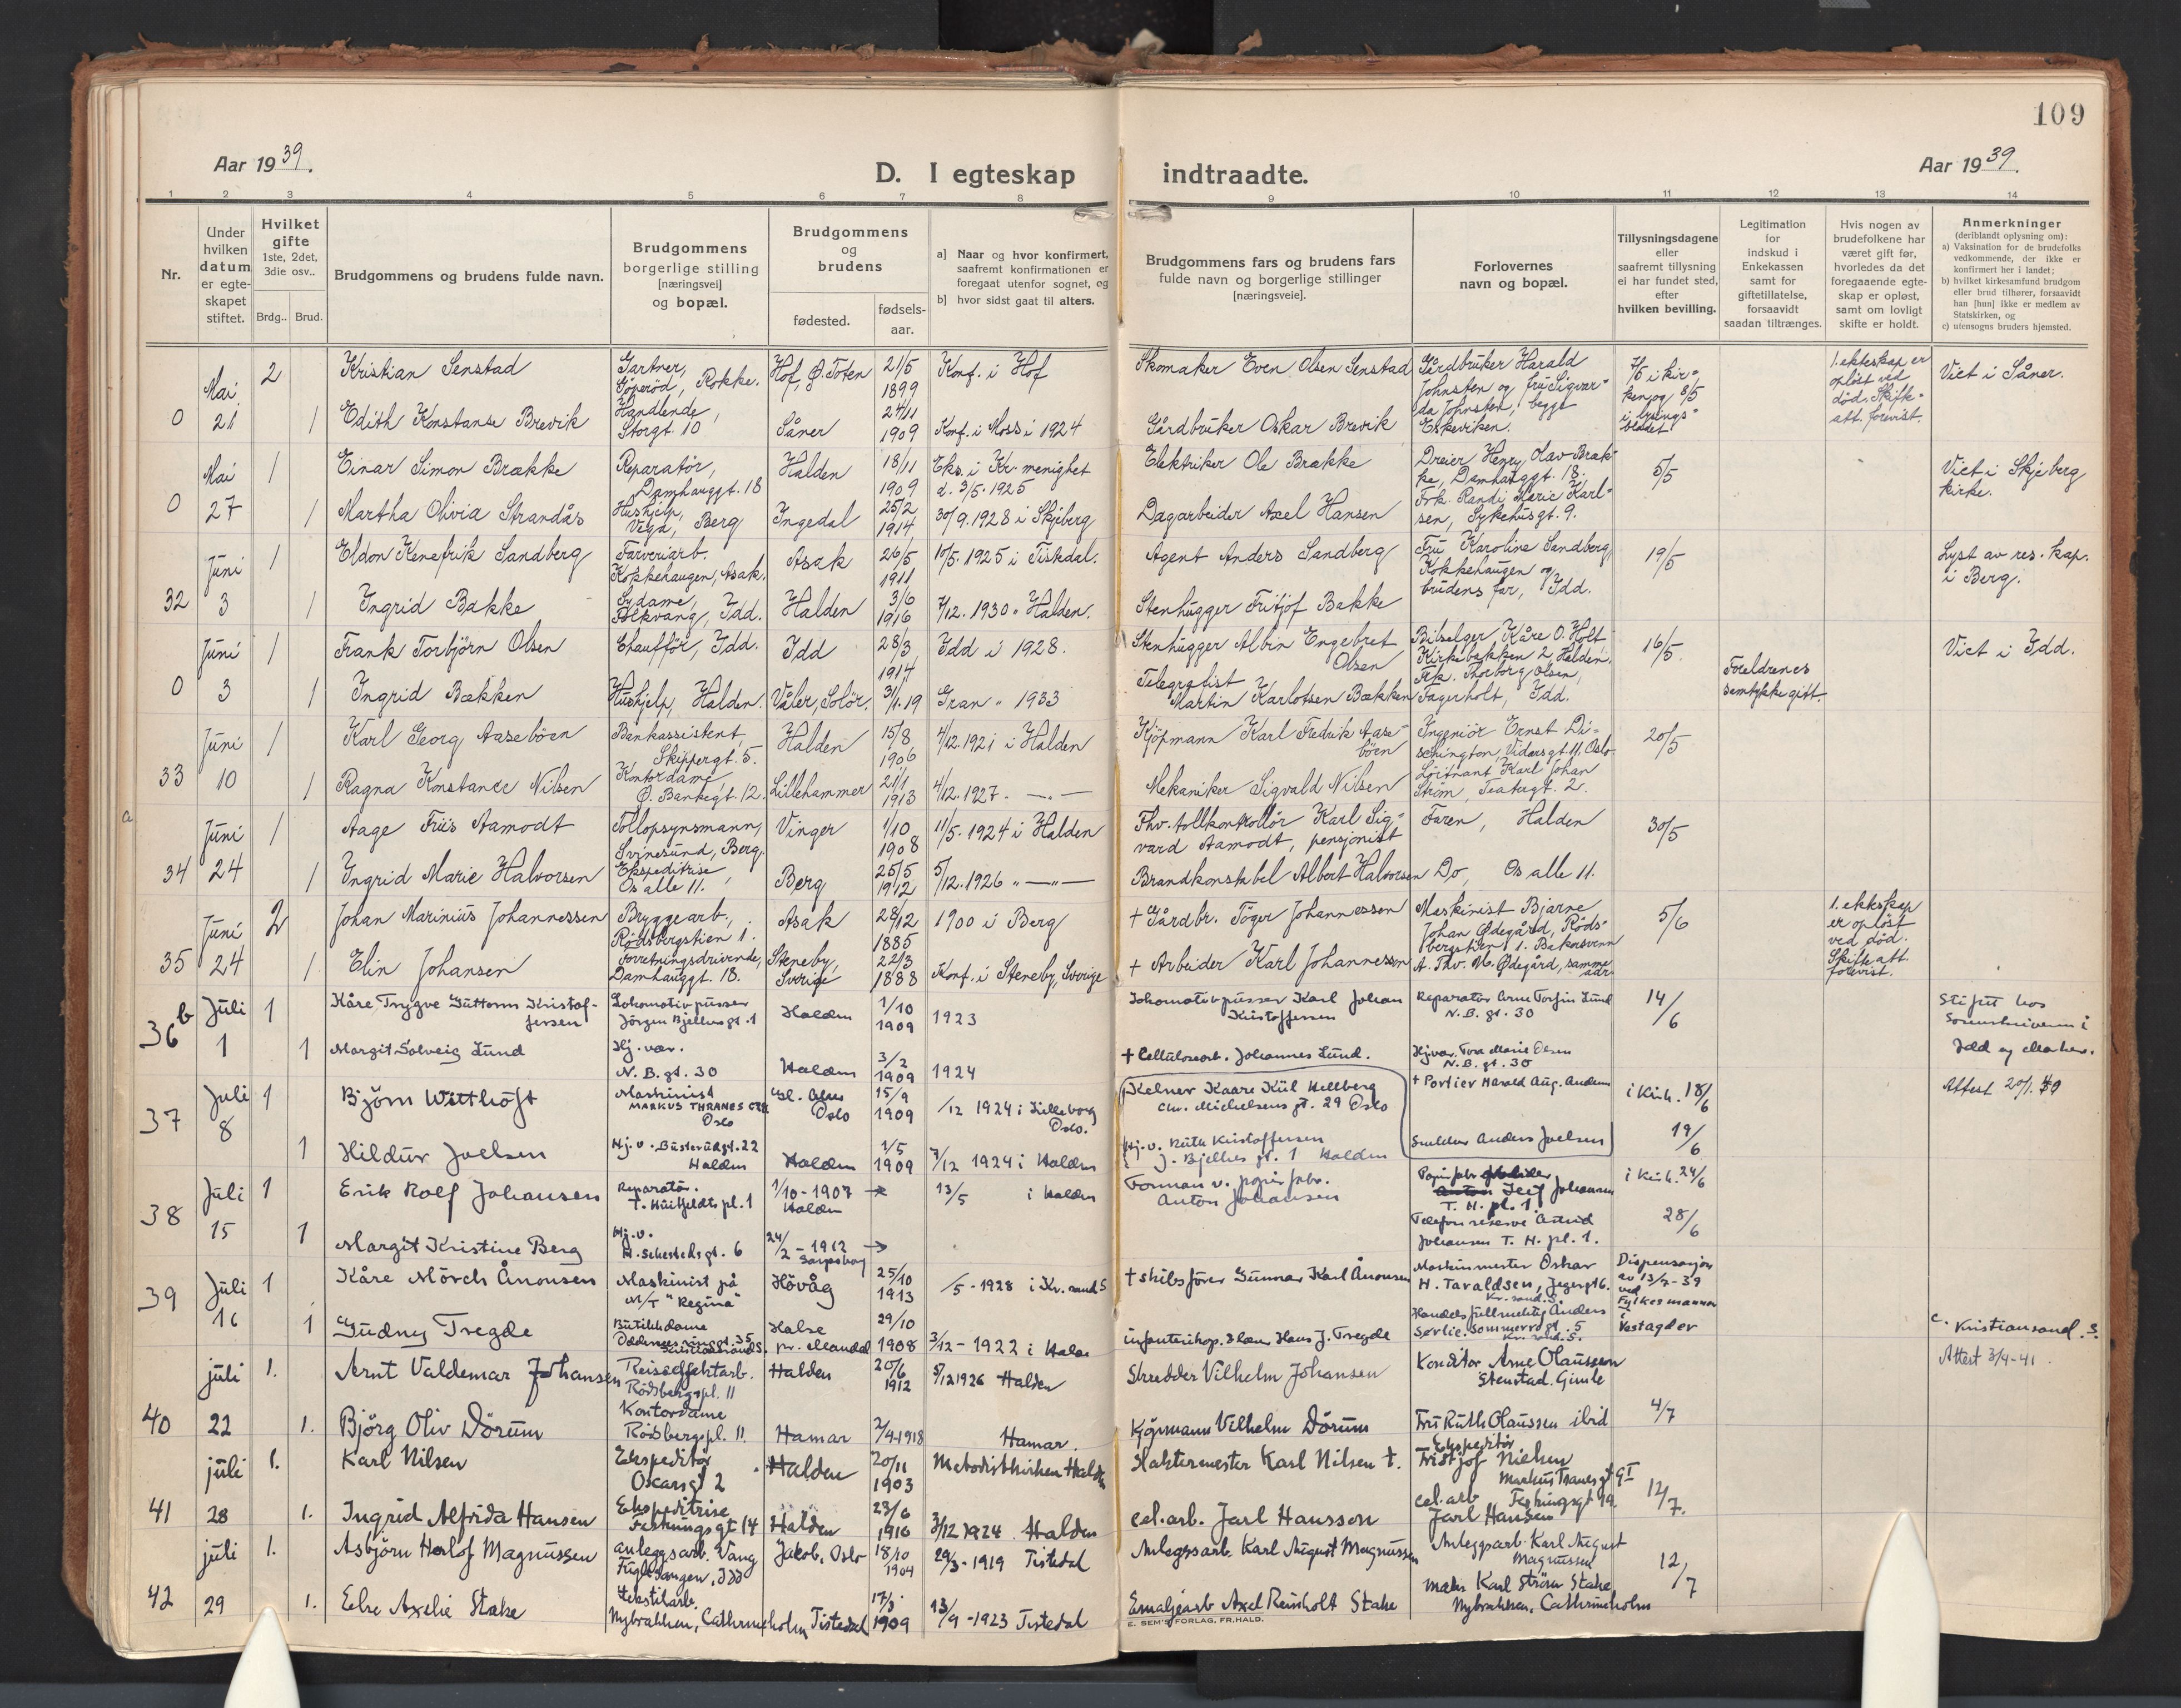 109
Aar 1939.
D. I egteskap indtraadte.
Aar 1939.
1 2 3 4 5 6 7 8 9 10 11 12 13 14
Nr.
Under hvilken datum er egteskapet stiftet.
Hvilket gifte 1ste, 2det, 3die osv..
Brdg.. Brud.
Brudgommens og brudens fulde navn.
Brudgommens borgerlige stilling [næringsvei] og bopæl.
Brudgommens og brudens
fødested. fødselsaar.
a] Naar og hvor konfirmert, saafremt konfirmationen er foregaat utenfor sognet, og
b] hvor sidst gaat til alters.
Brudgommens fars og brudens fars fulde navn og borgerlige stillinger [næringsveie].
Forlovernes navn og bopæl.
Tillysningsdagene eller saafremt tillysning ei har fundet sted, efter hvilken bevilling.
Legitimation for indskud i Enkekassen samt for giftetillatelse, forsaavidt saadan tiltrænges.
Hvis nogen av brudefolkene har været gift før, hvorledes da det foregaaende egteskap er opløst, samt om lovligt skifte er holdt.
Anmerkninger (deriblandt oplysning om):
a) Vaksination for de brudefolks vedkommende, der ikke er konfirmert her i landet;
b) hvilket kirkesamfund brudgom eller brud tilhører, forsaavidt han [hun] ikke er medlem av Statskirken, og
c) utensogns bruders hjemsted.
Mai 2 Kristian Senstad Gartner, Göperöd, Rokke. Hof, Ø. Toten 21/5 1899 Konf. i Hof Skomaker Even Olsen Senstad Gårdbruker Harald Johnsten og fru Sigvarda Johnsten, begge Eskeviken. 7/5 i kirken og 8/5 i lysingsbladet 1. ekteskap er opløst ved död. Skifteatt. forevist. Viet i Såner.
0 21 1 Edith Konstanse Brevik Handlende, Storgt. 10 Såner 24/11 1909 Konf. i Moss i 1924 Gårdbruker Oskar Brevik
Mai 1 Einar Simon Brække Reparatør, Damhauggt. 18 Halden 18/11 1909 Eks. i Kr. menighet d. 3/5-1925 Elektriker Ole Brække Dreier Henry Olav Brække, Damhauggt. 18. Frk. Randi Marie Karlsen, Sykehusgt. 9. 5/5 Viet i Skjeberg kirke.
0 27 1 Martha Olivia Strandås Hushjelp, Veja, Berg Ingedal 25/2 1914 30/9.1928 i Skjeberg Dagarbeider Axel Hansen
Juni 1 Eldon Kenefrik Sandberg Farveriarb. Kokkehaugen, Asak. Asak 26/5 1911 10/5.1925 i Tistedal. Agent Anders Sandberg Fru Karoline Sandberg, Kokkehaugen og brudens far, Idd. 19/5 Lyst av res. kap. i Berg.
32 3 1 Ingrid Bakke Sydame, Folkvang, Idd. Halden 3/6 1916 7/12.1930 " Halden. Stenhugger Fritjof Bakke
Juni 1 Frank Torbjörn Olsen Chaufför, Idd. Idd 28/3 1914 Idd i 1928. Stenhugger Albin Engebret Olsen Bilselger Kåre O. Holt Kirkebakken 2 Halden. Frk. Thorborg Olsen, Fagerholt, Idd. 16/5 Viet i Idd.
0 3 1 Ingrid Bækken Hushjelp, Halden. Våler, Solör. 31/1.19 Gran " 1933 Telegrafist Martin Karlotsen Bækken Foreldrenes samtykke gitt.
Juni 1 Karl Georg Aasebøen Bankassistent, Skippergt. 5. Halden 15/8 1906 4/12.1921 i Halden Kjöpmann Karl Fredrik Aasebøen Ingeniör Ernst Disenington, Vidars gt. 11. Oslo. Löitnant Karl Johan Ström, Teatergt. 2. 20/5
33 10 1 Ragna Konstance Nilsen Kontordame, Ø. Bankegt. 12. Lillehammer 21/1 1913 4/12.1927. —"— Mekaniker Sigvald Nilsen
a
Juni 1 Aage Friis Aamodt Tollopsynsmann, Svinesund, Berg. Vinger 1/10 1908 11/5.1924 i Halden Fhv. tollkontrollör Karl Sigvard Aamodt, pensjonist Faren, Halden 30/5
34 24 1 Ingrid Marie Halvorsen Ekspeditrise, Os alle 11. Berg 25/5 1912 5/12.1926 "—"— Brandkonstabel Albert Halvorsen Do, Os alle 11.
Juni 2 Johan Marinius Johannessen Bryggearb., Rödsbergstien 1. Asak 28/12 1885 1900 i Berg + Gårdbr. Töger Johannessen Maskinist Bjarne Johan Ødegård, Rödsbergstien 1. A. Thv. M. Ødegård, samme adr. 5/6 1. ekteskap er oplöst ved död. Skifteatt. forevist.
35 24 1 Elin Johansen Forretningsdrivende, Damhauggt. 18. Steneby, Sverige 22/3 1888 Konf. i Steneby, Sverige + Arbeider Karl Johannessen
36 b Juli 1 Kåre Trygve Guttorm Kristoffersen Lokomotivpusser Jörgen Bjelkes gt. 1 Halden 1/10 1909 1923 Lokomotivpusser Karl Johan Kristoffersen Reparatör Arne Torfin Lund N.B. gt. 30 14/6 Stiftet hos Sorenskriveren i Idd og Marker.
1 1 Margit Solveig Lund Hj. vær. N.B. gt. 30 Halden 3/2 1909 1924 + Cellulosearb. Johannes Lund. Hj.vær. Tora Marie Olsen N.B. gt. 30
37 Juli 8 1 Björn Witthöft Maskinist MARKUS THRANES Oslo Gl. Aker Oslo 15/9 1909 /12 1924 i Lilleborg Oslo. Kelner Kaare Kül Hellberg Chr. Michelsens gt. 29 Oslo + Portier Harald Aug. Andersen i Kirk. 18/6 Attest 20/1. 40
1 Hildur Joelsen Hj. v. Busterudgt. 22 Halden Halden 1/5 1909 7/12 1924 i Halden Hj. v. Ruth Kristoffersen J. Bjelkes gt. 1 Halden Snekker Anders Joelsen 19/6
38 Juli 15 1 Erik Rolf Johansen Reparatör. T. Huitfeldts pl. 1 1/10-1907 Halden 13/5 i Halden Forman v. papirfabr. Anton Johansen Papirfabr. Leif Johansen T. H. pl. 1. Telefonreserve Astrid Johansen T. H. pl. 1. i Kirk. 24/6 28/6
1 Margit Kristine Berg Hj. v. H. Sehesteds gt. 6 24/2-1912 Sarpsborg
39 Juli 16 1 Kåre Mörch Ånonsen Maskinist på M/T "Regina" Hövåg 25/10 1913 /5-1928 i Kr.sand S + Skibsförer Gunnar Karl Ånonsen Maskinmester Oskar H. Taraldsen, Jegergt 6. Kr.sand. S. Handelsfullmektig Anders Sørlie. Sommerrogt. 5 Kr.sand. S. Dispensasjon av 13/7-39 ved Fylkesmannen i Vestagder
1 Gudny Tregde Butikkdame Kristiansand S. Halse pr. Mandal 29/10 1908 3/12-1922 i Halse Hans J. Tregde c. Kristiansand. S.
juli 1. Arnt Valdemar Johansen Reiseeffektarb. Rödsbergspl. 11 Halden 20/6 1912 5/12 1926 Halden Skredder Vilhelm Johansen Konditor Arne Olaussen Stenstad. Gimle 4/7 Attest 3/4-41.
40 22 1. Björg Oliv Dörum Kontordame Rödsbergspl. 11. Hamar 2/4-1918 Hamar. Kjöpmann Vilhelm Dörum Fru Ruth Olaussen ibid
juli 1. Karl Nilsen Ekspeditör Oscarsgt 2 Halden 20/11 1903 Metodistkirken Halden Karl Nilsen t. Ekspeditör Fristjof Nielsen Markus Tranes gt 9I cel.arb Festningsgt 14. Jarl Hansen 12/7.
41 28 1. Ingrid Alfrida Hansen Ekspeditrise Festningsgt 14 Halden 23/6 1916 3/12 1924 Halden cel.arb. Jarl Hansson
juli 1. Asbjörn Herlof Magnussen anleggsarb. Vang Idd Jakob, Oslo 18/10 1904 29/3-1919 Tistedal Anleggsarb. Karl August Magnussen Anleggsarb. Karl August Magnussen maler Karl Ström Stake Nybrakken, Cathrineholm 12/7
42 29 1. Else Axelie Stake tekstilarb. Nybrakken, Cathrineholm Tistedal 17/3 1909 13/9-1923 Tistedal Emaljearb Axel Reinholt Stake
E. SEM'S FORLAG, FR.HALD.